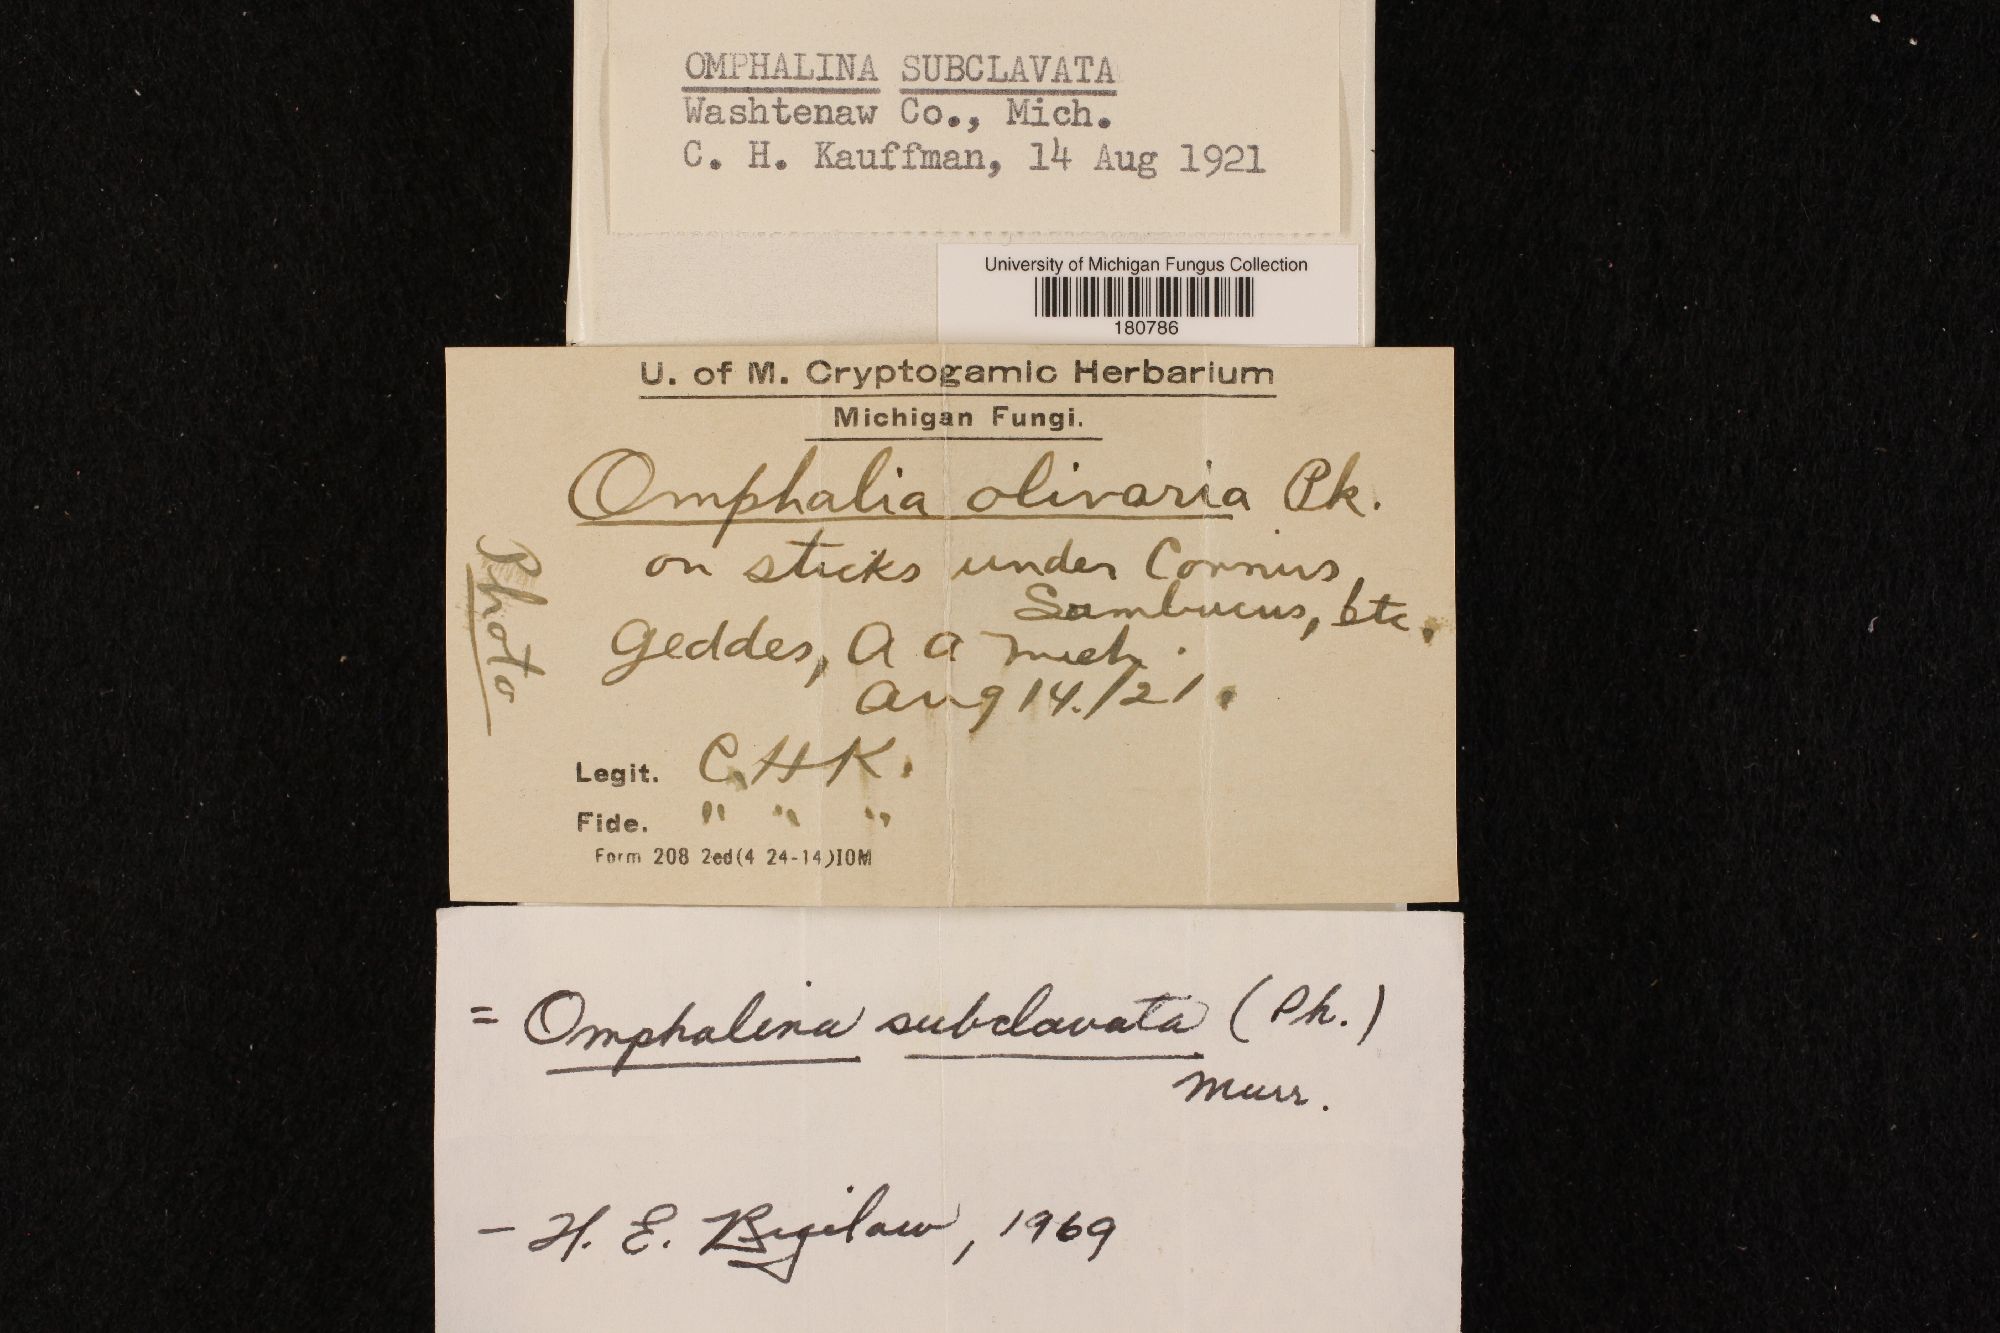 OMPHALINA SUBCLAVATA
Washtenaw Co., Mich.
C. H. Kauffman, 14 Aug 1921
University of Michigan Fungus Collection
180786
U. of M. Cryptogamic Herbarium
Michigan Fungi.
Omphalia olivaria Pk.
on sticks under Cornus,
Sambucus, etc.
Geddes, A A Mich.
Aug 14./21.
Photo
Legit. C.H.K.
Fide. " " "
Form 208 2ed(4 24-14)10M
= Omphalina subclavata (Pk.)
Murr.
- H. E. Bigelow, 1969